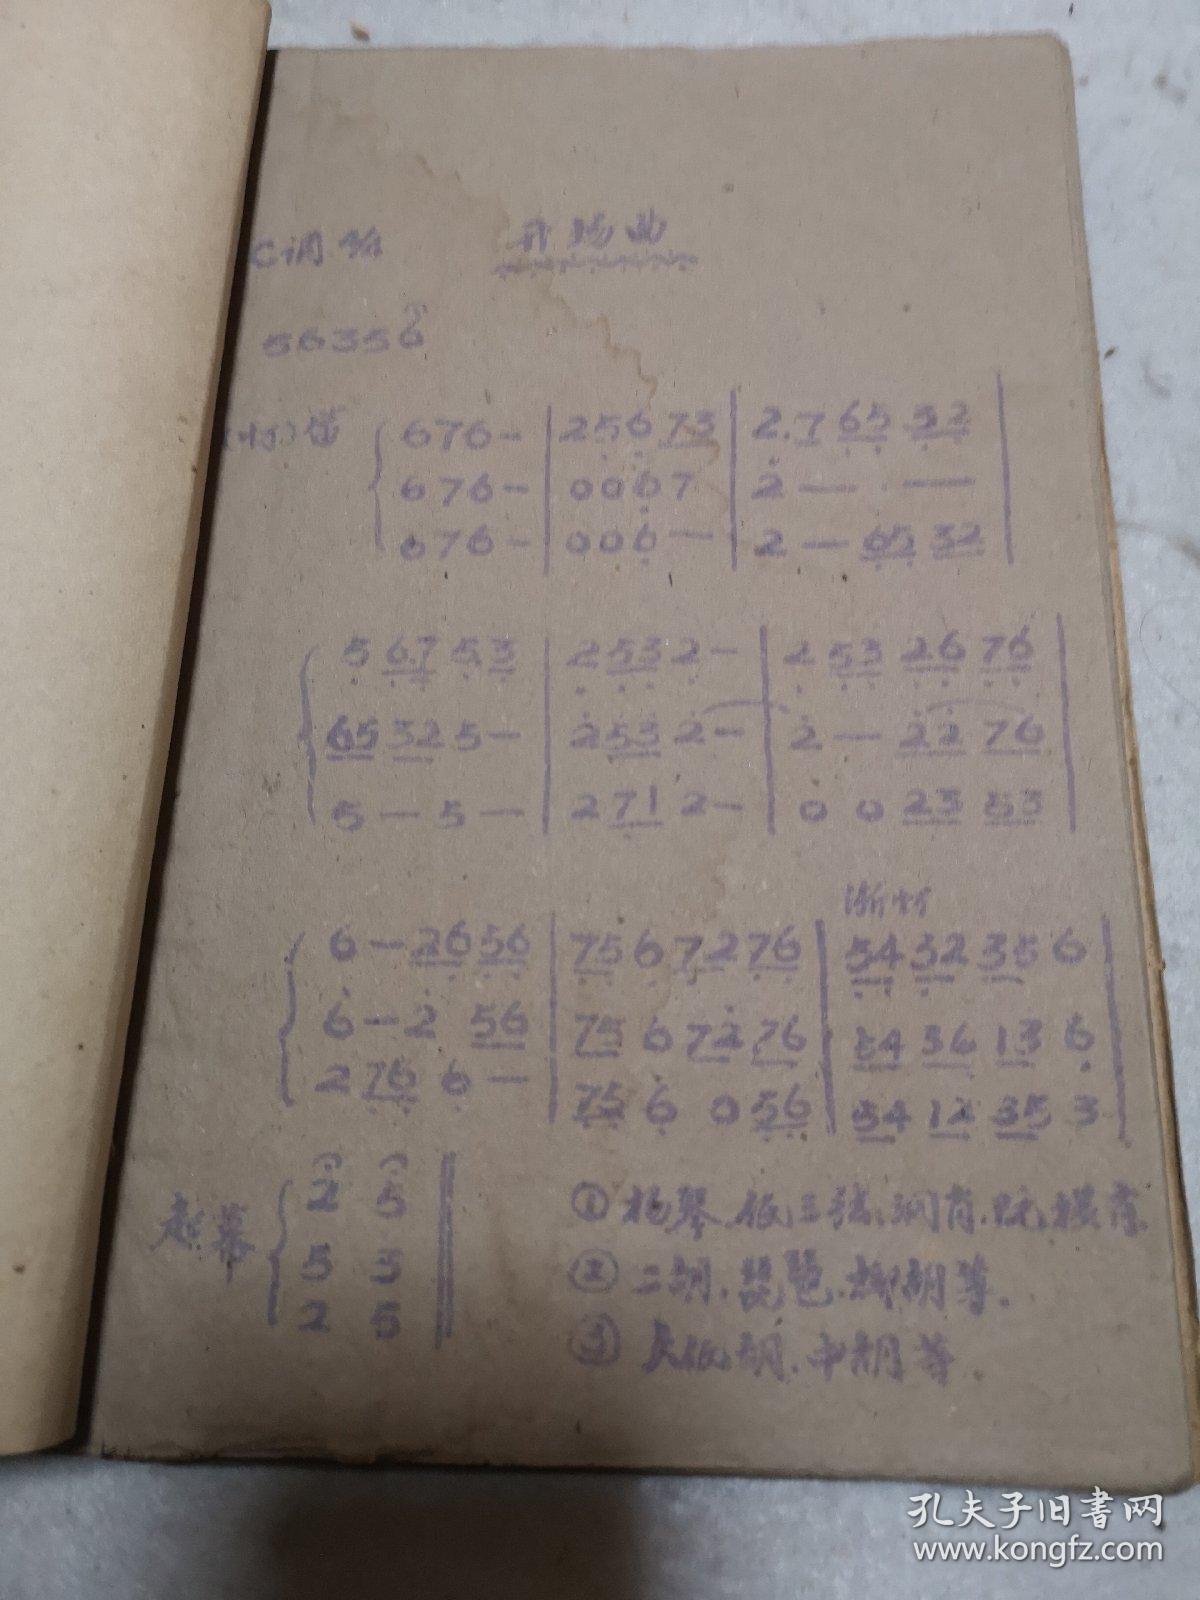 C调 开场曲
5 6 3 5 6
6 7 6 - | 2 5 6 7 3 | 2 . 7 6 5 3 2 |
6 7 6 - | 0 0 6 7 | 2 — — |
6 7 6 - | 0 0 6 — | 2 — 6 5 3 2 |
5 6.7 5 3 | 2 5 3 2 - | 2 5 3 2 6 7 6 |
6 5 3 2 5 - | 2 5 3 2 - | 2 — 2 2 7 6 |
5 — 5 — | 2 7 1 2 - | 0 0 2 3 5 3 |
渐慢
6 — 2 6 5 6 | 7 5 6 7 2 7 6 | 5 4 3 2 3 5 6 |
6 — 2 5 6 | 7 5 6 7 2 7 6 | 5 4 3 6 1 3 6 |
2 7 6 6 — | 7 5 6 0 5 6 | 5 4 1 2 3 5 3 |
起幕 2 5
5 5
2 5
①扬琴.低三弦.洞肖.横肖
②二胡.琵琶.柳胡等.
③大低胡.中胡等.
孔夫子旧书网
www.kongfz.com